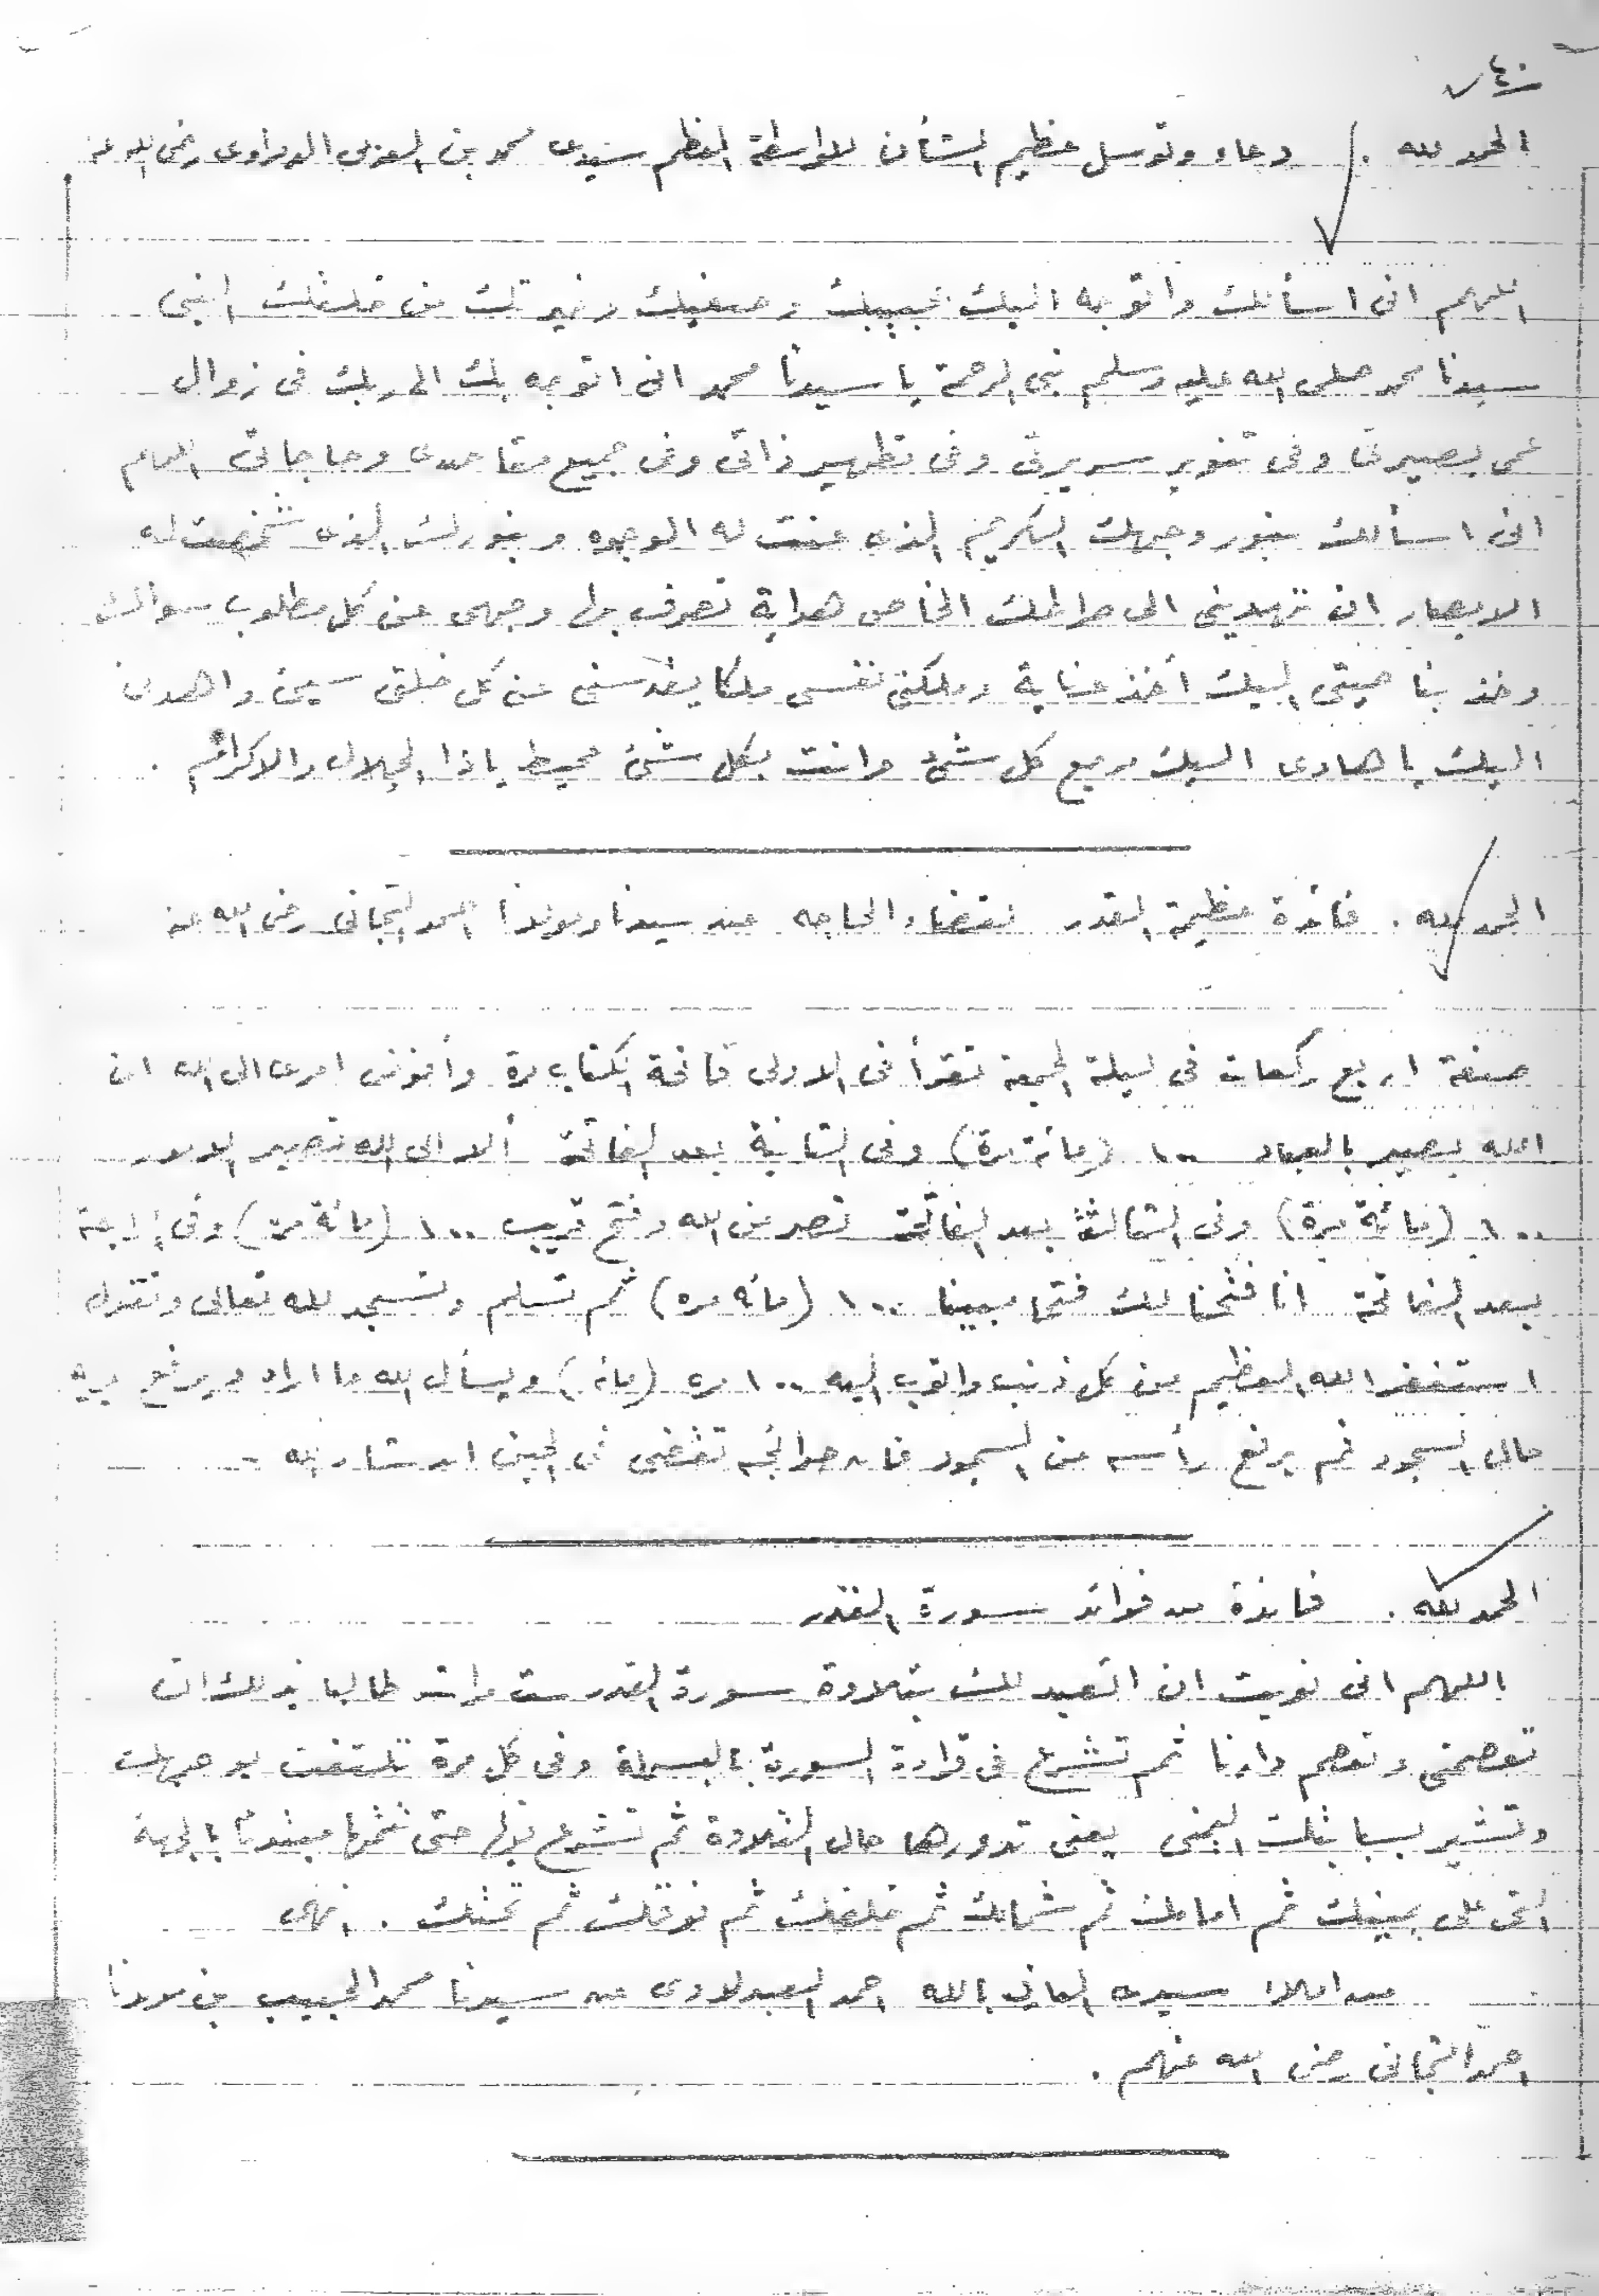 ٤٠
الحمد لله . دعاء وتوسل عظيم الشأن للواسطة المعظم سيدى محمد بن العربى الدمراوى رضى الله عنه
اللهم انى اسألك واتوجه اليك بحبيبك وصفيك وخيرتك من خلقك النبى
سيدنا محمد صلى الله عليه وسلم نبى الرحمة يا سيدنا محمد انى اتوجه بك الى ربك فى زوال
عمى بصيرتى وفى تنوير سريرتى وفى تطهير ذاتى وفى جميع مقاصدى وحاجاتى اللهم
انى اسألك بنور وجهك الكريم الذى عنت له الوجوه وبنورك الذى شخصت له
الابصار ان تهدينى الى صراطك الخاص هداية تصرف بها وجهى عن كل مطلوب سواك
وخذ بناصيتى اليك أخذ عناية وملكنى نفسى ملكا يقدسنى عن كل خلق سيئ واهدنى
اليك يا هادى اليك مرجع كل شئ وانت بكل شئ محيط ياذا الجلال والاكرام .
الحمد لله . فائدة عظيمة القدر لقضاء الحاجه عند سيدنا ومولانا احمد التجانى رضى الله عنه
صفة اربع ركعات فى ليلة الجمعة تقرأ فى الاولى فاتحة الكتاب مرة وأفوض امرى الى الله ان
الله بصير بالعباد ١٠٠ (مائة مرة) وفى الثانية بعد الفاتحة ألا الى الله تصير الامور
١٠٠ (مائة مرة) وفى الثالثة بعد الفاتحة نصر من الله وفتح قريب ١٠٠ (مائة مرة) وفى الرابعة
بعد الفاتحة انا فتحنا لك فتحا مبينا ١٠٠ (مائه مره) ثم تسلم وتسجد لله تعالى وتقول
استغفر الله العظيم من كل ذنب واتوب اليه ١٠٠ مره (مائه) ويسأل الله ما اراد ويرفع يديه
حال السجود ثم يرفع رأسه من السجود فان حوائجه تقضى فى الحين ان شاء الله
الحمد لله . فائدة من فوائد سورة القدر
اللهم انى نويت ان اتعبد لك بتلاوة سورة القدر ست مرات طالبا بذلك ان
تعصمنى وتعصم دارنا ثم تشرع فى قراءة السورة بالبسملة وفى كل مرة تلتفت بوجهك
وتشير بسبابتك اليمنى يعنى تدورها حال التلاوة ثم تشرع بها حتى تختمها مبتدئا بالجهة
التى على يمينك ثم امامك ثم شمالك ثم خلفك ثم فوقك ثم تحتك . انتهى
من املاء سيدى العارف بالله احمد العبدلاوى عن سيدنا محمد الحبيب بن مولانا
احمد التجانى رضى الله عنهم .